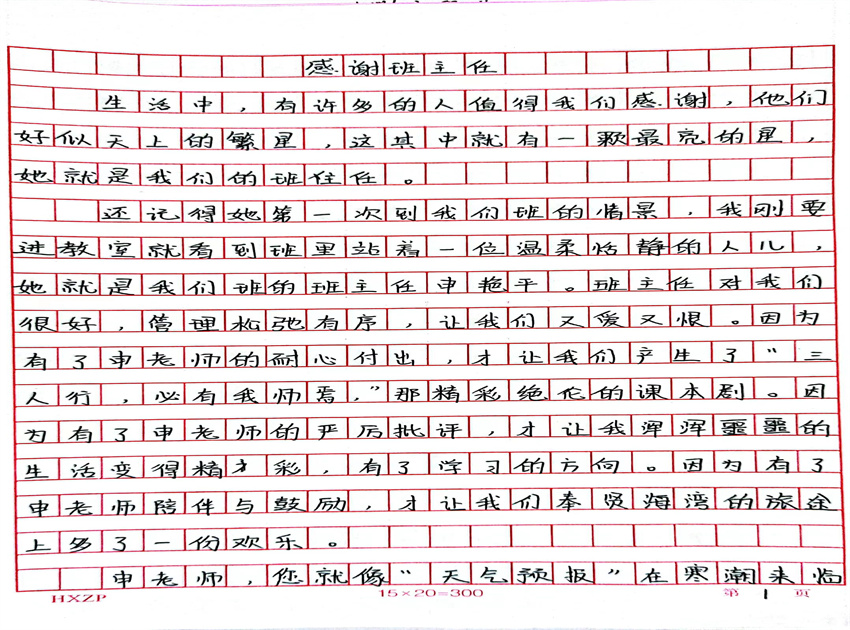 感谢班主任
生活中，有许多的人值得我们感谢，他们
好似天上的繁星，这其中就有一颗最亮的星，
她就是我们的班住任。
还记得她第一次到我们班的情景，我刚要
进教室就看到班里站着一位温柔恬静的人儿，
她就是我们班的班主任申艳平。班主任对我们
很好，管理松弛有序，让我们又爱又恨。因为
有了申老师的耐心付出，才让我们产生了“三
人行，必有我师焉，”那精彩绝伦的课本剧。因
为有了申老师的严厉批评，才让我浑浑噩噩的
生活变得精才彩，有了学习的方向。因为有了
申老师陪伴与鼓励，才让我们奉贤海湾的旅途
上多了一份欢乐。
申老师，您就像“天气预报”在寒潮来临
HXZP
15×20=300
第1页